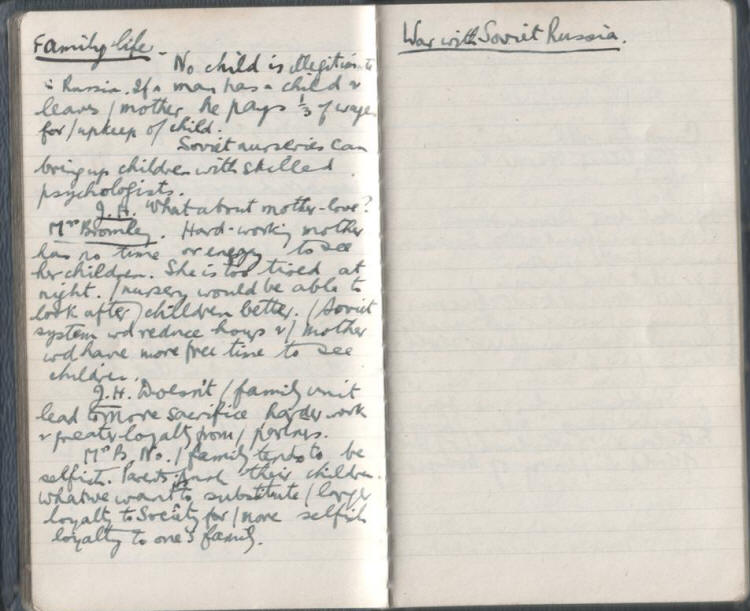 Family-life.
No child is illegitimate
in Russia. If a man has a child &
leaves / mother he pays 1/3 of wages
for / upkeep of child.
Soviet nurseries can
bring up children with skilled
psychologists.
J.H. What about mother-love?
Mrs Bromley. Hard-working mother
has no time or energy to see
her children. She is too tired at
night. / nursery would be able to
look after / children better. / Soviet
system wd reduce hours & / mother
wd have more free time to see
children.
J.H. Doesn't / family unit
lead to more sacrifice harder work
& greater loyalty from / partners.
Mrs B. No. / family tends to be
selfish. Parents push their children.
What we want is to substitute / larger
loyalty to Society for / more selfish
loyalty to one's family.
War with Soviet Russia.